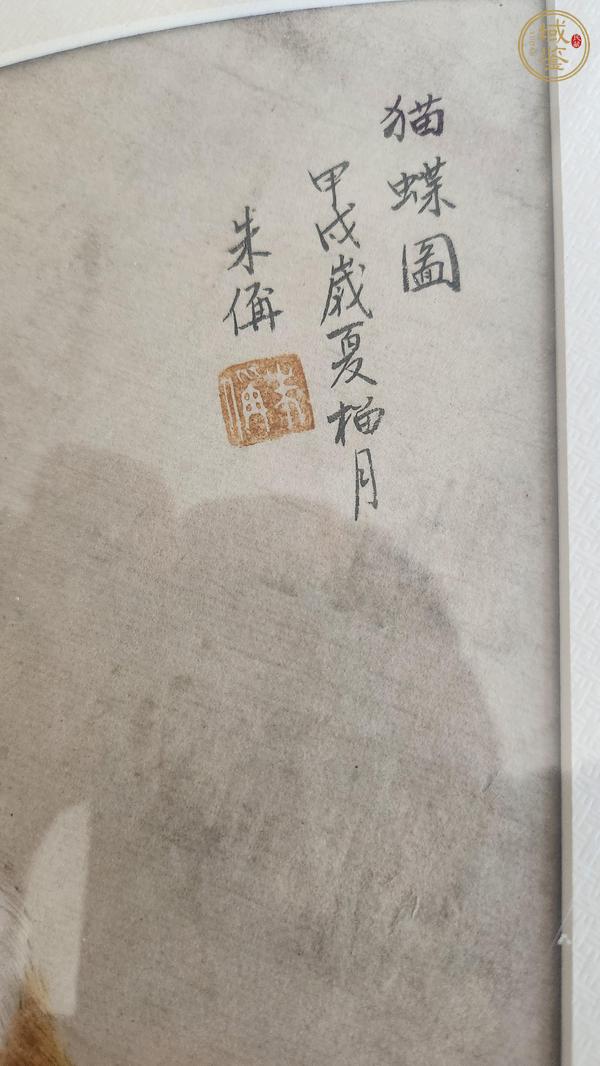 猫蝶圖
甲戌歲夏榴月
朱偁
朱偁
域鉴